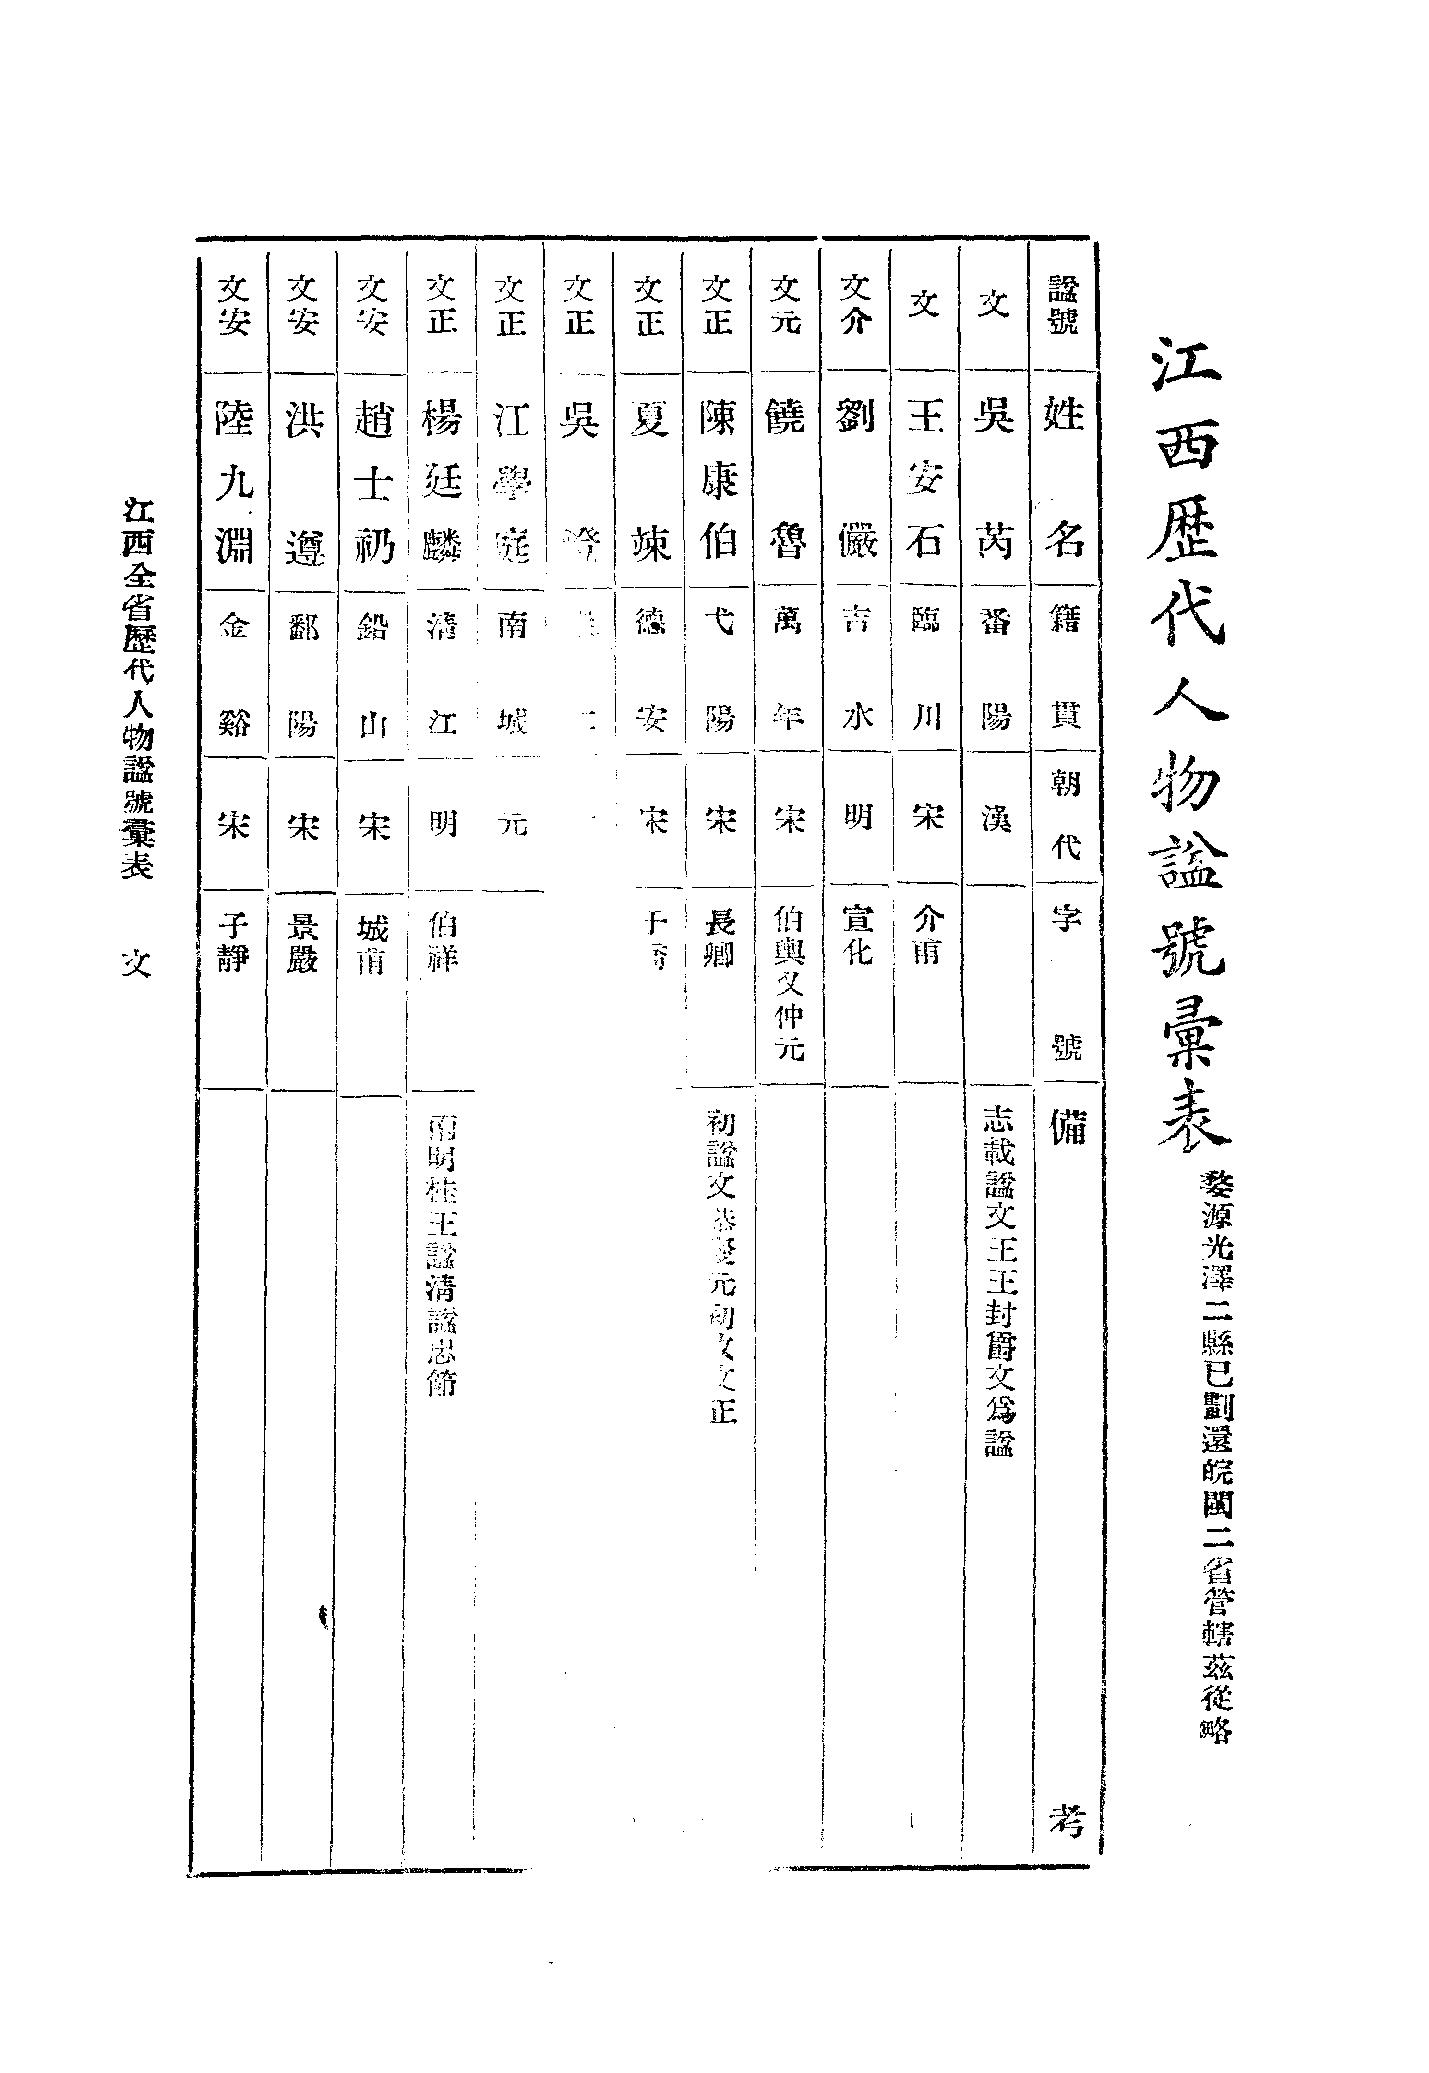 江西歷代人物諡號彙表
婺源光澤二縣已劃還皖閩二省管轄茲從略
諡號 姓名 籍貫 朝代 字號 備考
文 吳芮 番陽 漢 志載諡文王王封爵文為諡
文 王安石 臨川 宋 介甫
文介 劉儼 吉水 明 宣化
文元 饒魯 萬年 宋 伯輿又仲元
文正 陳康伯 弋陽 宋 長卿 初諡文恭慶元初改文正
文正 夏竦 德安 宋 子喬
文正 吳澄
文正 江學庭 南城 元
文正 楊廷麟 清江 明 伯祥 南明桂王諡清諡忠節
文安 趙士礽 鉛山 宋 城甫
文安 洪遵 鄱陽 宋 景嚴
文安 陸九淵 金谿 宋 子靜
江西全省歷代人物諡號彙表 文